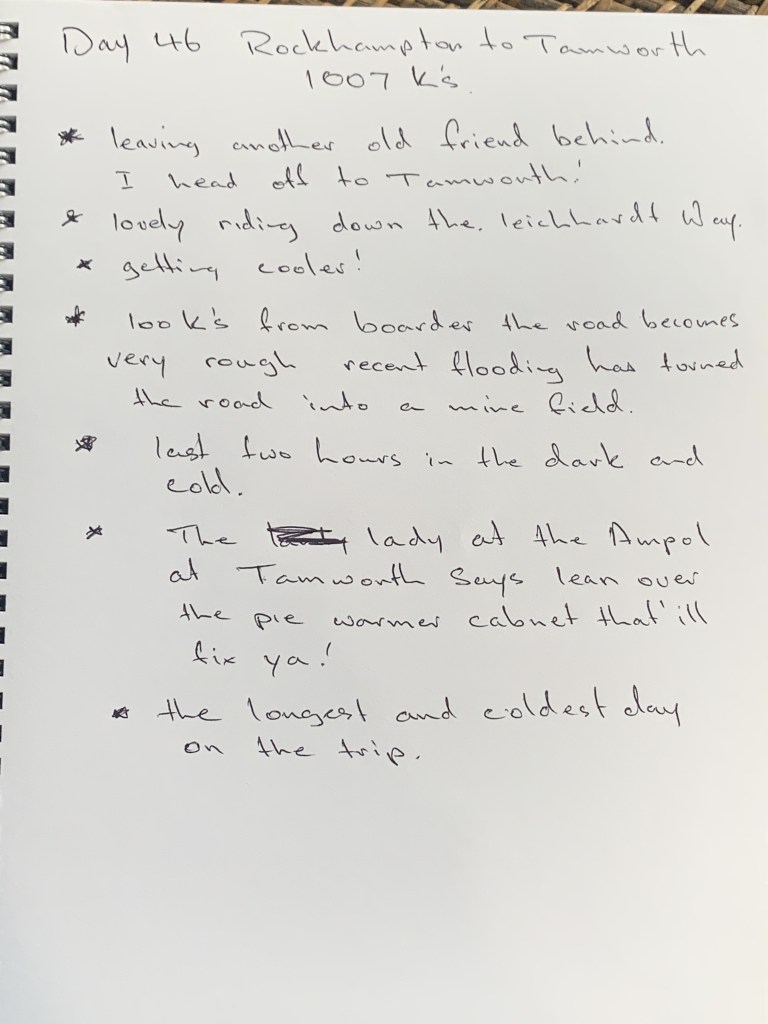 Day 46 Rockhampton to Tamworth
1007 K's.
* leaving another old friend behind.
I head off to Tamworth!
* lovely riding down the. leichhardt Way.
* getting cooler!
* 100 K's from boarder the road becomes
very rough recent flooding has turned
the road into a mine field.
* last two hours in the dark and
cold.
* The lady at the Ampol
at Tamworth Says lean over
the pie warmer cabnet that'ill
fix ya!
* the longest and coldest day
on the trip.